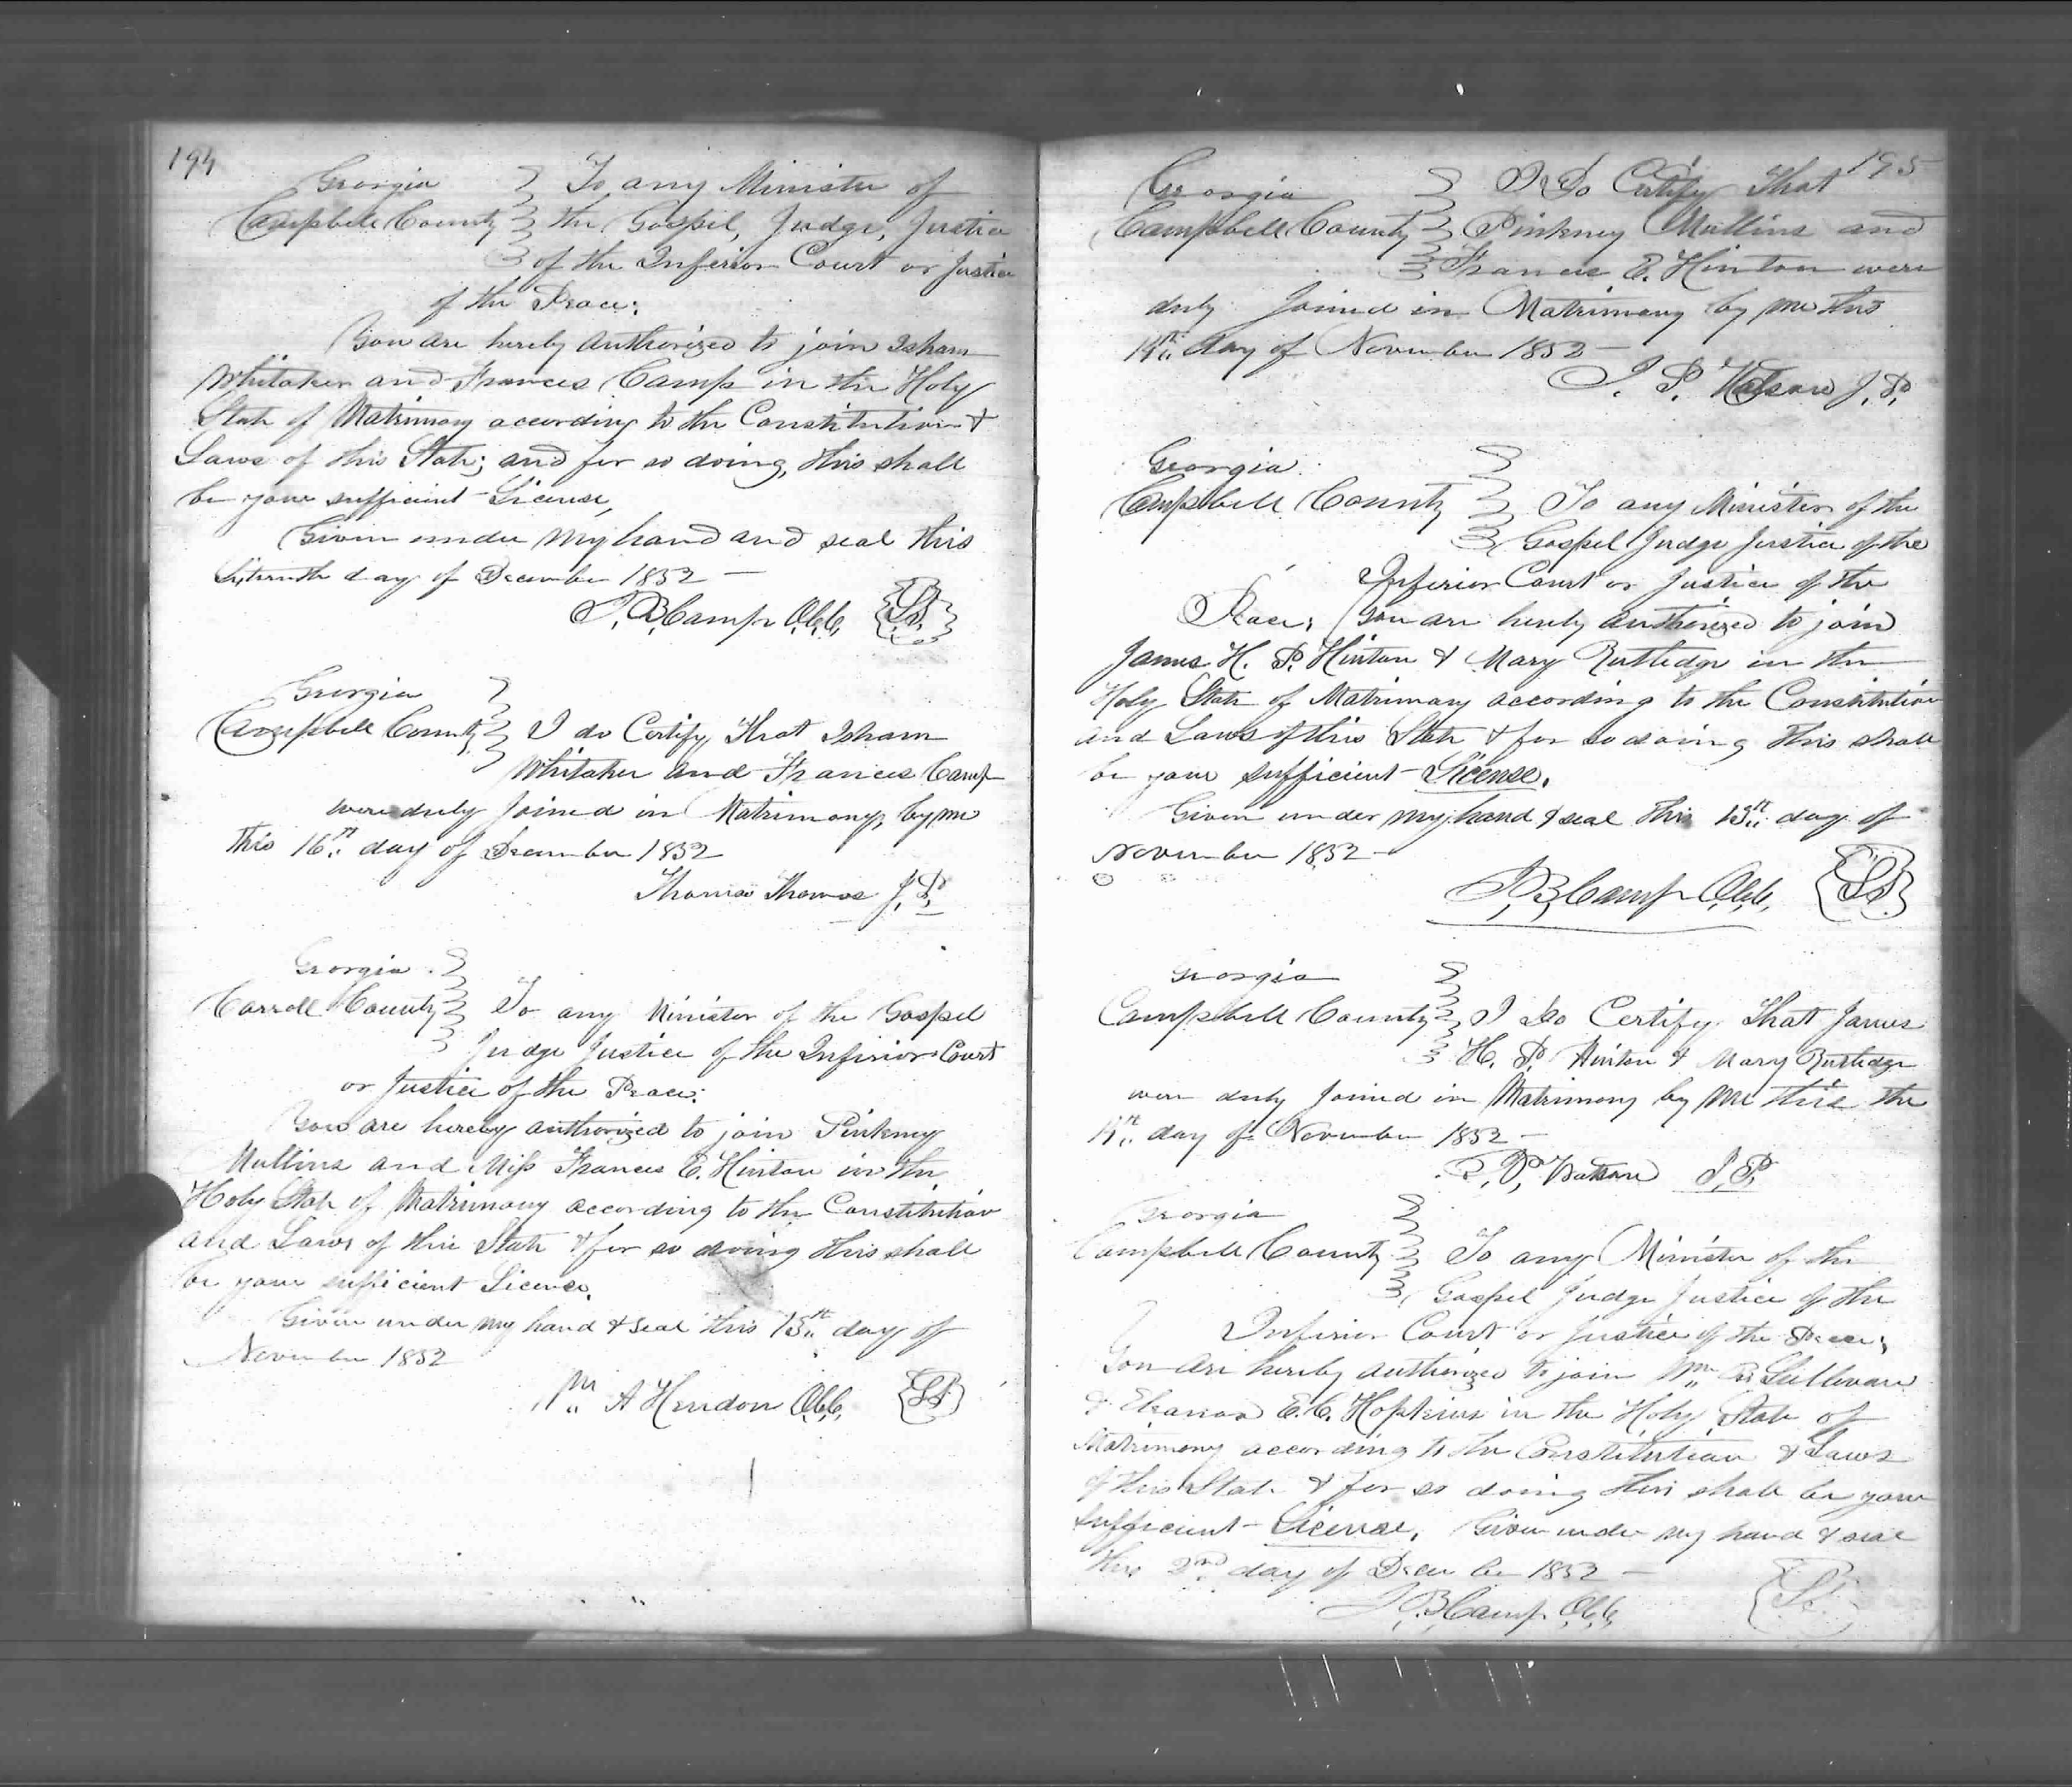 194
Georgia
Campbell County
To any Minister of
the Gospel, Judge, Justice
of the Inferior Court or Justice
of the Peace:
You are hereby authorized to join Isham
Whitaker and Frances Camp in the Holy
State of Matrimony according to the Constitution &
Laws of this State; and for so doing, this shall
be your sufficient License,
Given under my hand and seal this
day of December 1852
J. B. Camp C.C.O.
L.S.
Georgia
Campbell County
I do Certify, That Isham
Whitaker and Frances Camp
were duly joined in Matrimony, by me
this 16th day of December 1852
Thomas Thomas J.P.
Georgia
Carroll County
To any Minister of the Gospel
Judge Justice of the Inferior Court
or Justice of the Peace:
You are hereby authorized to join Pinkney
Mullins and Miss Frances E. Hinton in the
Holy State of Matrimony according to the Constitution
and Laws of this State & for so doing this shall
be your sufficient License.
Given under my hand & seal this 13th day of
November 1852
Wm A Herndon C.C.O.
L.S.
195
Georgia
Campbell County
I Do Certify That
Pinkney Mullins and
Frances E. Hinton were
duly joined in Matrimony by me this
14th day of November 1852
P. Watson J.P.
Georgia
Campbell County
To any Minister of the
Gospel Judge Justice of the
Inferior Court or Justice of the
Peace; You are hereby authorized to join
James H. P. Hinton & Mary Rutledge in the
Holy State of Matrimony according to the Constitution
and Laws of this State & for so doing this shall
be your sufficient License.
Given under my hand & seal this 13th day of
November 1852
J. B. Camp C.C.O.
L.S.
Georgia
Campbell County
I Do Certify That James
H. P. Hinton & Mary Rutledge
were duly joined in Matrimony by me this the
day of November 1852
P. Watson J.P.
Georgia
Campbell County
To any Minister of the
Gospel Judge Justice of the
Inferior Court or Justice of the Peace;
You are hereby authorized to join Wm B Sullivan
& Eleanor E. C. Hopkins in the Holy State of
Matrimony according to the Constitution & Laws
of this State & for so doing this shall be your
sufficient License. Given under my hand & seal
this 2nd day of December 1852
J. B. Camp C.C.O.
L.S.